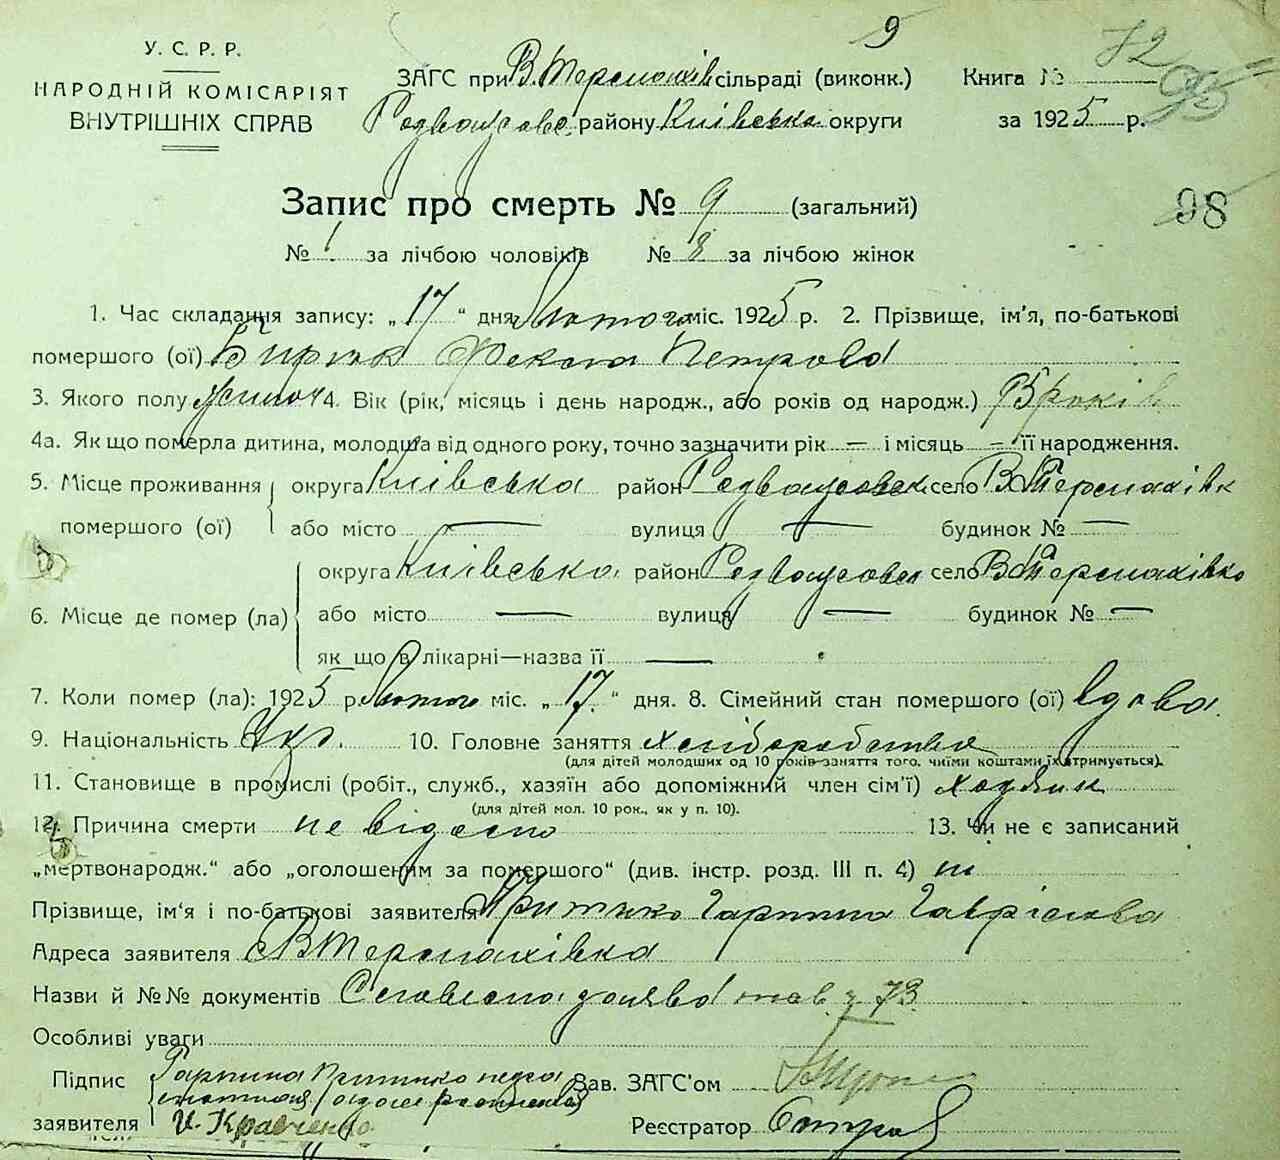 9
У. С. Р. Р.
НАРОДНІЙ КОМІСАРІЯТ
ВНУТРІШНІХ СПРАВ
ЗАГС при В. Термахівс сільраді (виконк.)
району Київська округи
Книга № 72
за 1925 р.
Запис про смерть № 9 (загальний)
98
№ 1 за лічбою чоловіків № 8 за лічбою жінок
1. Час складання запису: „17“ дня Лютого міс. 1925 р. 2. Прізвище, ім'я, по-батькові
помершого (ої) Бирюк Фекла Петрова
3. Якого полу жіноч 4. Вік (рік, місяць і день народж., або років од народж.) років
4а. Як що померла дитина, молодша від одного року, точно зазначити рік — і місяць — її народження.
5. Місце проживання помершого (ої) округа Київська район село В. Термахівк
або місто — вулиця — будинок № —
6. Місце де помер (ла) округа Київська район село В. Термахівка
або місто — вулиця — будинок № —
як що в лікарні—назва її —
7. Коли помер (ла): 1925 р. Лютого міс. „17“ дня. 8. Сімейний стан помершого (ої) вдова.
9. Національність Укр. 10. Головне заняття хліборобство
(для дітей молодших од 10 років—заняття того, чиїми коштами їх утримується).
11. Становище в промислі (робіт., служб., хазяїн або допоміжний член сім'ї)
(для дітей мол. 10 рок., як у п. 10).
12. Причина смерти не відомо 13. Чи не є записаний
„мертвонародж.“ або „оголошеним за помершого“ (див. інстр. розд. III п. 4) ні
Прізвище, ім'я і по-батькові заявителя Притико Гарпина Гаврілова
Адреса заявителя с. В Термахівка
Назви й №№ документів Словесна заява 73
Особливі уваги
Підпис заявителя Гарпина Притико
И. Кравченко
Зав. ЗАГС'ом
Реєстратор